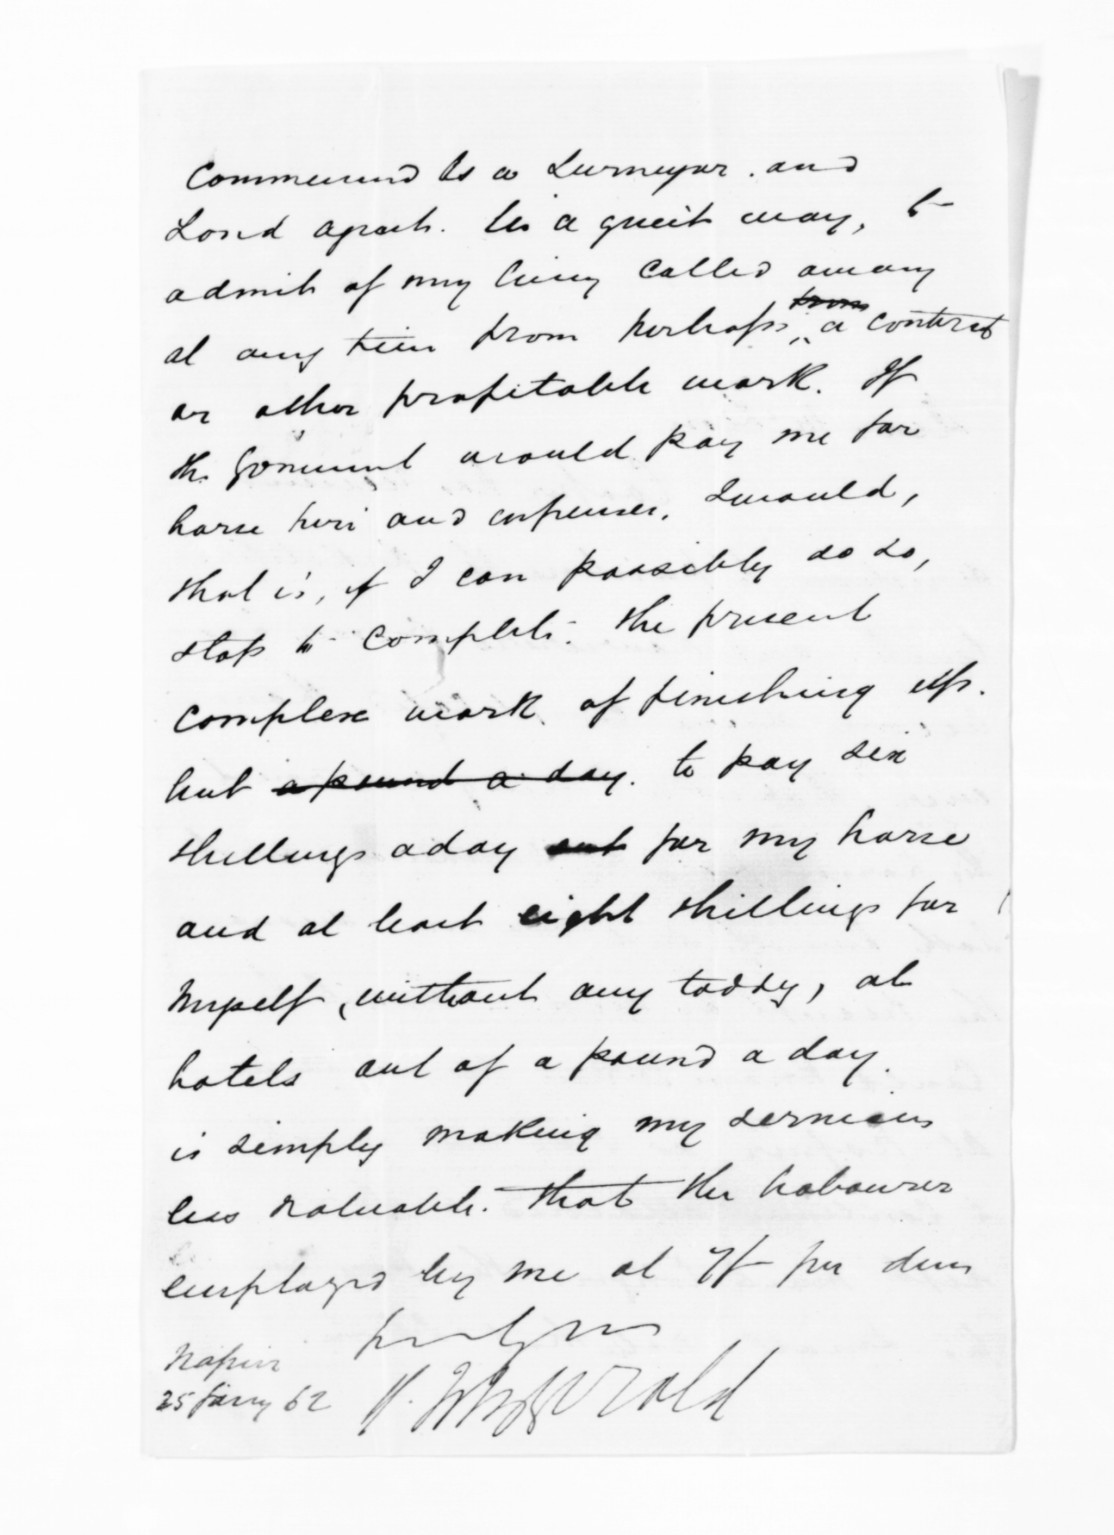 Command as a Surveyor. and
Land agent. in a quiet way, to
admit of my being called away
at any time from perhaps ~~from~~ a contract
or other profitable work. If
the Goverment would pay me for
horse hire and expenses. I would,
that is, if I can possibly do so,
stop to complete. the present
complex work of finishing up.
but ~~a pound a day~~. to pay six
shillings a day ~~out~~ for my horse
and at least eight shillings for
myself, without any toddy, at
hotels out of a pound a day.
is simply making my services
less valuable. than the labourer
employed by me at 7/- per diem
H. FitzGerald
Napier
25 Jany 62